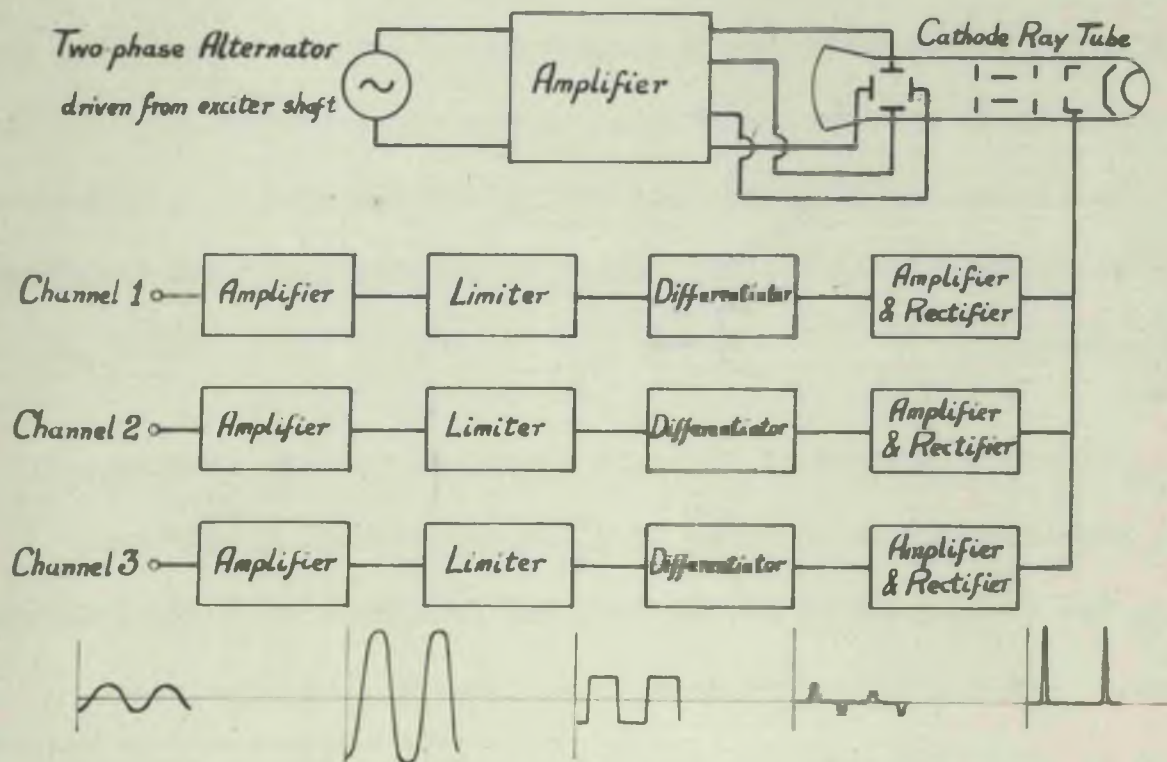 Two-phase Alternator
driven from exciter shaft
~
Amplifier
Cathode Ray Tube
Channel 1
Amplifier
Limiter
Differentiator
Amplifier
& Rectifier
Channel 2
Amplifier
Limiter
Differentiator
Amplifier
& Rectifier
Channel 3
Amplifier
Limiter
Differentiator
Amplifier
& Rectifier